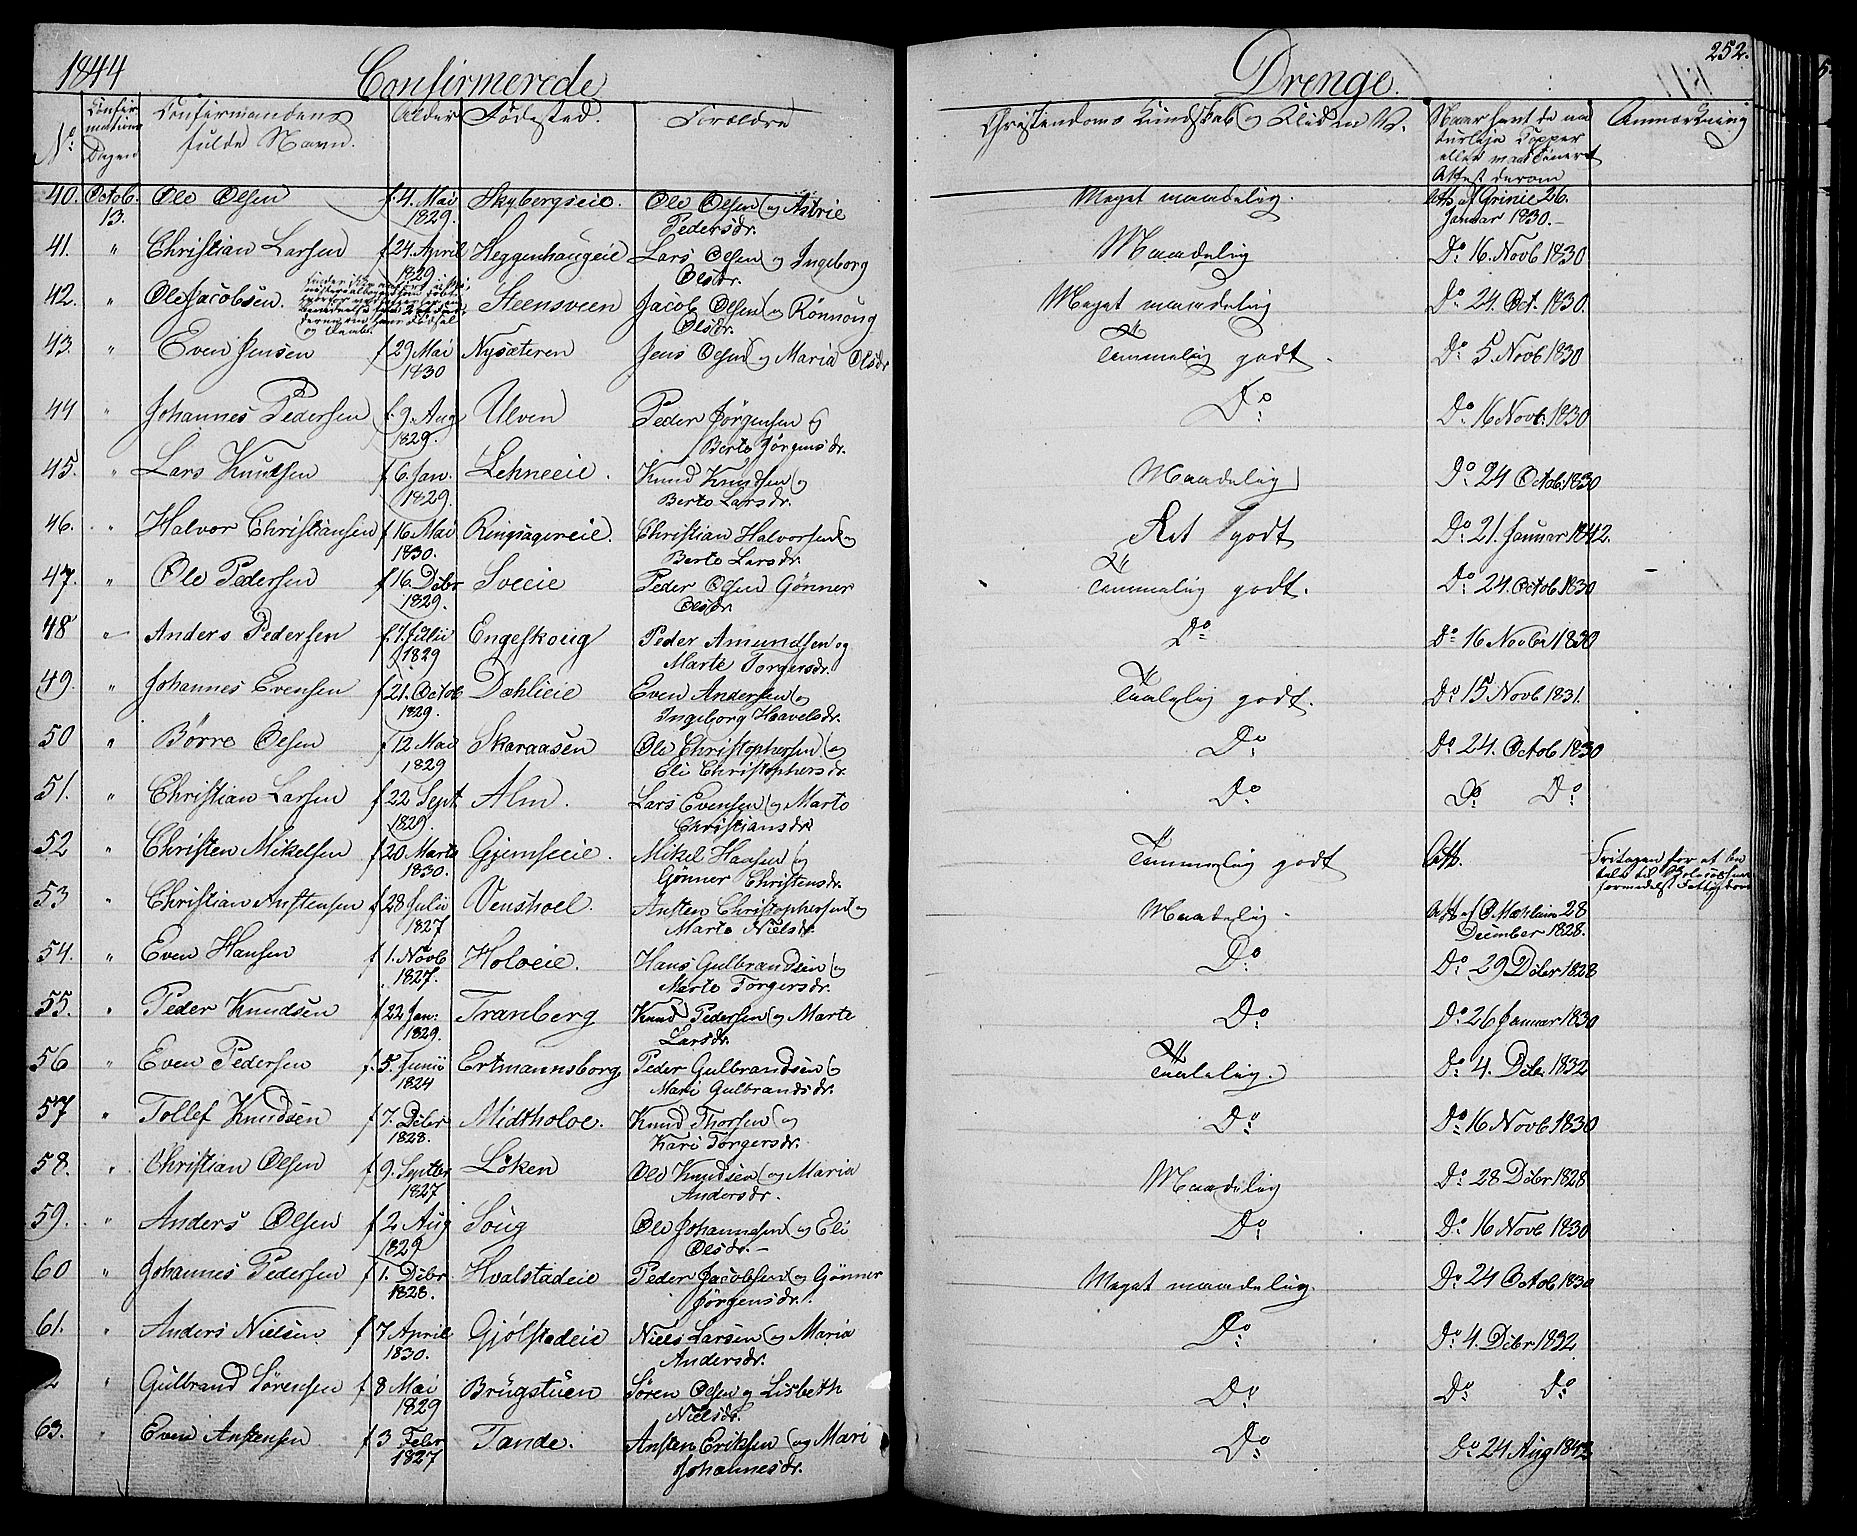 1844 Confirmerede Drenge. 252.
No. Confirmations Dagen Confirmandens fulde Navn. Alder Fødested. Forældre Christendoms Kundskab og Naar havt de na
turlige Kopper
eller vaccineret
Attest derom Anmærkning
40. Octob. Ole Olsen f. 4. Mai Skybergseie. Ole Olsen og Astrie Meget maadelig. Att. af Grinie 26.
13. 1829. Pedersdr. Januar 1830.
41. " Christian Larsen f 24. April Heggenhaugeie Lars Olsen og Ingeborg Maadelig Do 16. Novb 1830
1829 Olsdr.
42. " Ole Jacobsen. Steensveen Jacob Olsen og Rønnoug Meget maadelig Do 24 Oct. 1830.
Olsdr.
43. " Even Jensen f 29 Mai Nysæteren Jens Olsen og Maria Olsdr Temmelig godt. Do 5 Novb 1830
1830
44 " Johannes Pedersen f. 9. Aug Ulven Peder Jørgensen og Do Do 16 Novb. 1830
1829. Berte Jørgensdr.
45. " Lars Knudsen f 6. Jan. Lehneeie. Knud Knudsen og Maadelig Do 24 Octob. 1830
1829. Berte Larsdr.
46. " Halvor Christiansen f 16 Mai Ringsagereie. Christian Halvorsen og Ret godt Do 21. Januar 1842.
1830. Berte Larsdr.
47. " Ole Pedersen f 16. Dcbr Sveeie Peder Olsen Gønner Temmelig godt. Do 24. Octob 1830
1829. Olsdr.
48 " Anders Pedersen f. 1. Julii Engeskoug Peder Amundsen og Do Do 16 Novbr 1830
1829 Marte Torgersdr.
49. " Johannes Evensen f 21. Octob Dahlieie Even Andersen og Taalelig godt. Do 15 Novb 1831.
1829. Ingeborg Haavelsdr.
50 " Børre Olsen f 12 Mai Skaraasen Ole Christophersen og Do Do 24. Octob 1830
1829 Eli Christophersdr.
51. " Christian Larsen f 22 Sept. Alm. Lars Evensen og Marte Do Do Do
1829. Christiansdr.
52 " Christen Mikelsen f 20 Marts Gjemseeie. Mikel Hansen og Temmelig godt Att. Fritagen for at be
1830. Gønner Christensdr. tale til Skolecassen
formedelst Fattigdom
53 " Christian Anstensen f 28 Julii Venshoel. Ansten Christophersen og Maadelig. Att. af O. Mæhlum 28
1827 Marte Nielsdr December 1828.
54. " Even Hansen f 1. Novb Holoeie. Hans Gulbrandsen og Do Do 29 Dcbr 1828
1827. Marte Torgersdr.
55. " Peder Knudsen f 22 Jan: Tranberg Knud Pedersen og Marte Do Do 26 Januar 1830
1829. Larsdr.
56 " Even Pedersen f. 5. Junii Ertmannsborg Peder Gulbrandsen og Taalelig. Do 4. Dcbr 1832
1824 Mari Gulbrandsdr.
57 " Tollef Knudsen f 7. Dcbr Midtholoe. Knud Thorsen og Do Do 16 Novb 1830
1828. Kari Torgersdr.
58. " Christian Olsen f 9. Septbr Løken Ole Knudsen og Maria Maadelig Do 28 Dcbr 1828
1827 Andersdr.
59. " Anders Olsen f 2 Aug Soug Ole Johannesen og Eli Do Do 16 Novb 1830
1829 Olsdr.
60 " Johannes Pedersen f 1. Dcbr. Hvalstadeie Peder Jacobsen og Gønner Meget maadelig. Do 24 Octob 1830
1828. Jørgensdr.
61. " Anders Nielsen f 7 April Gjølstadeie Niels Larsen og Maria Do Do 4. Dcbr 1832
1830. Andersdr.
2 " Gulbrand Sørensen f 8 Mai Brugstuen Søren Olsen og Lisbeth Do Do Do
1829 Nielsdr.
63. " Even Anstensen f 3 Febr Tande. Ansten Eriksen og Mari Do Do 24 Aug 1843
1827 Johannesdr.